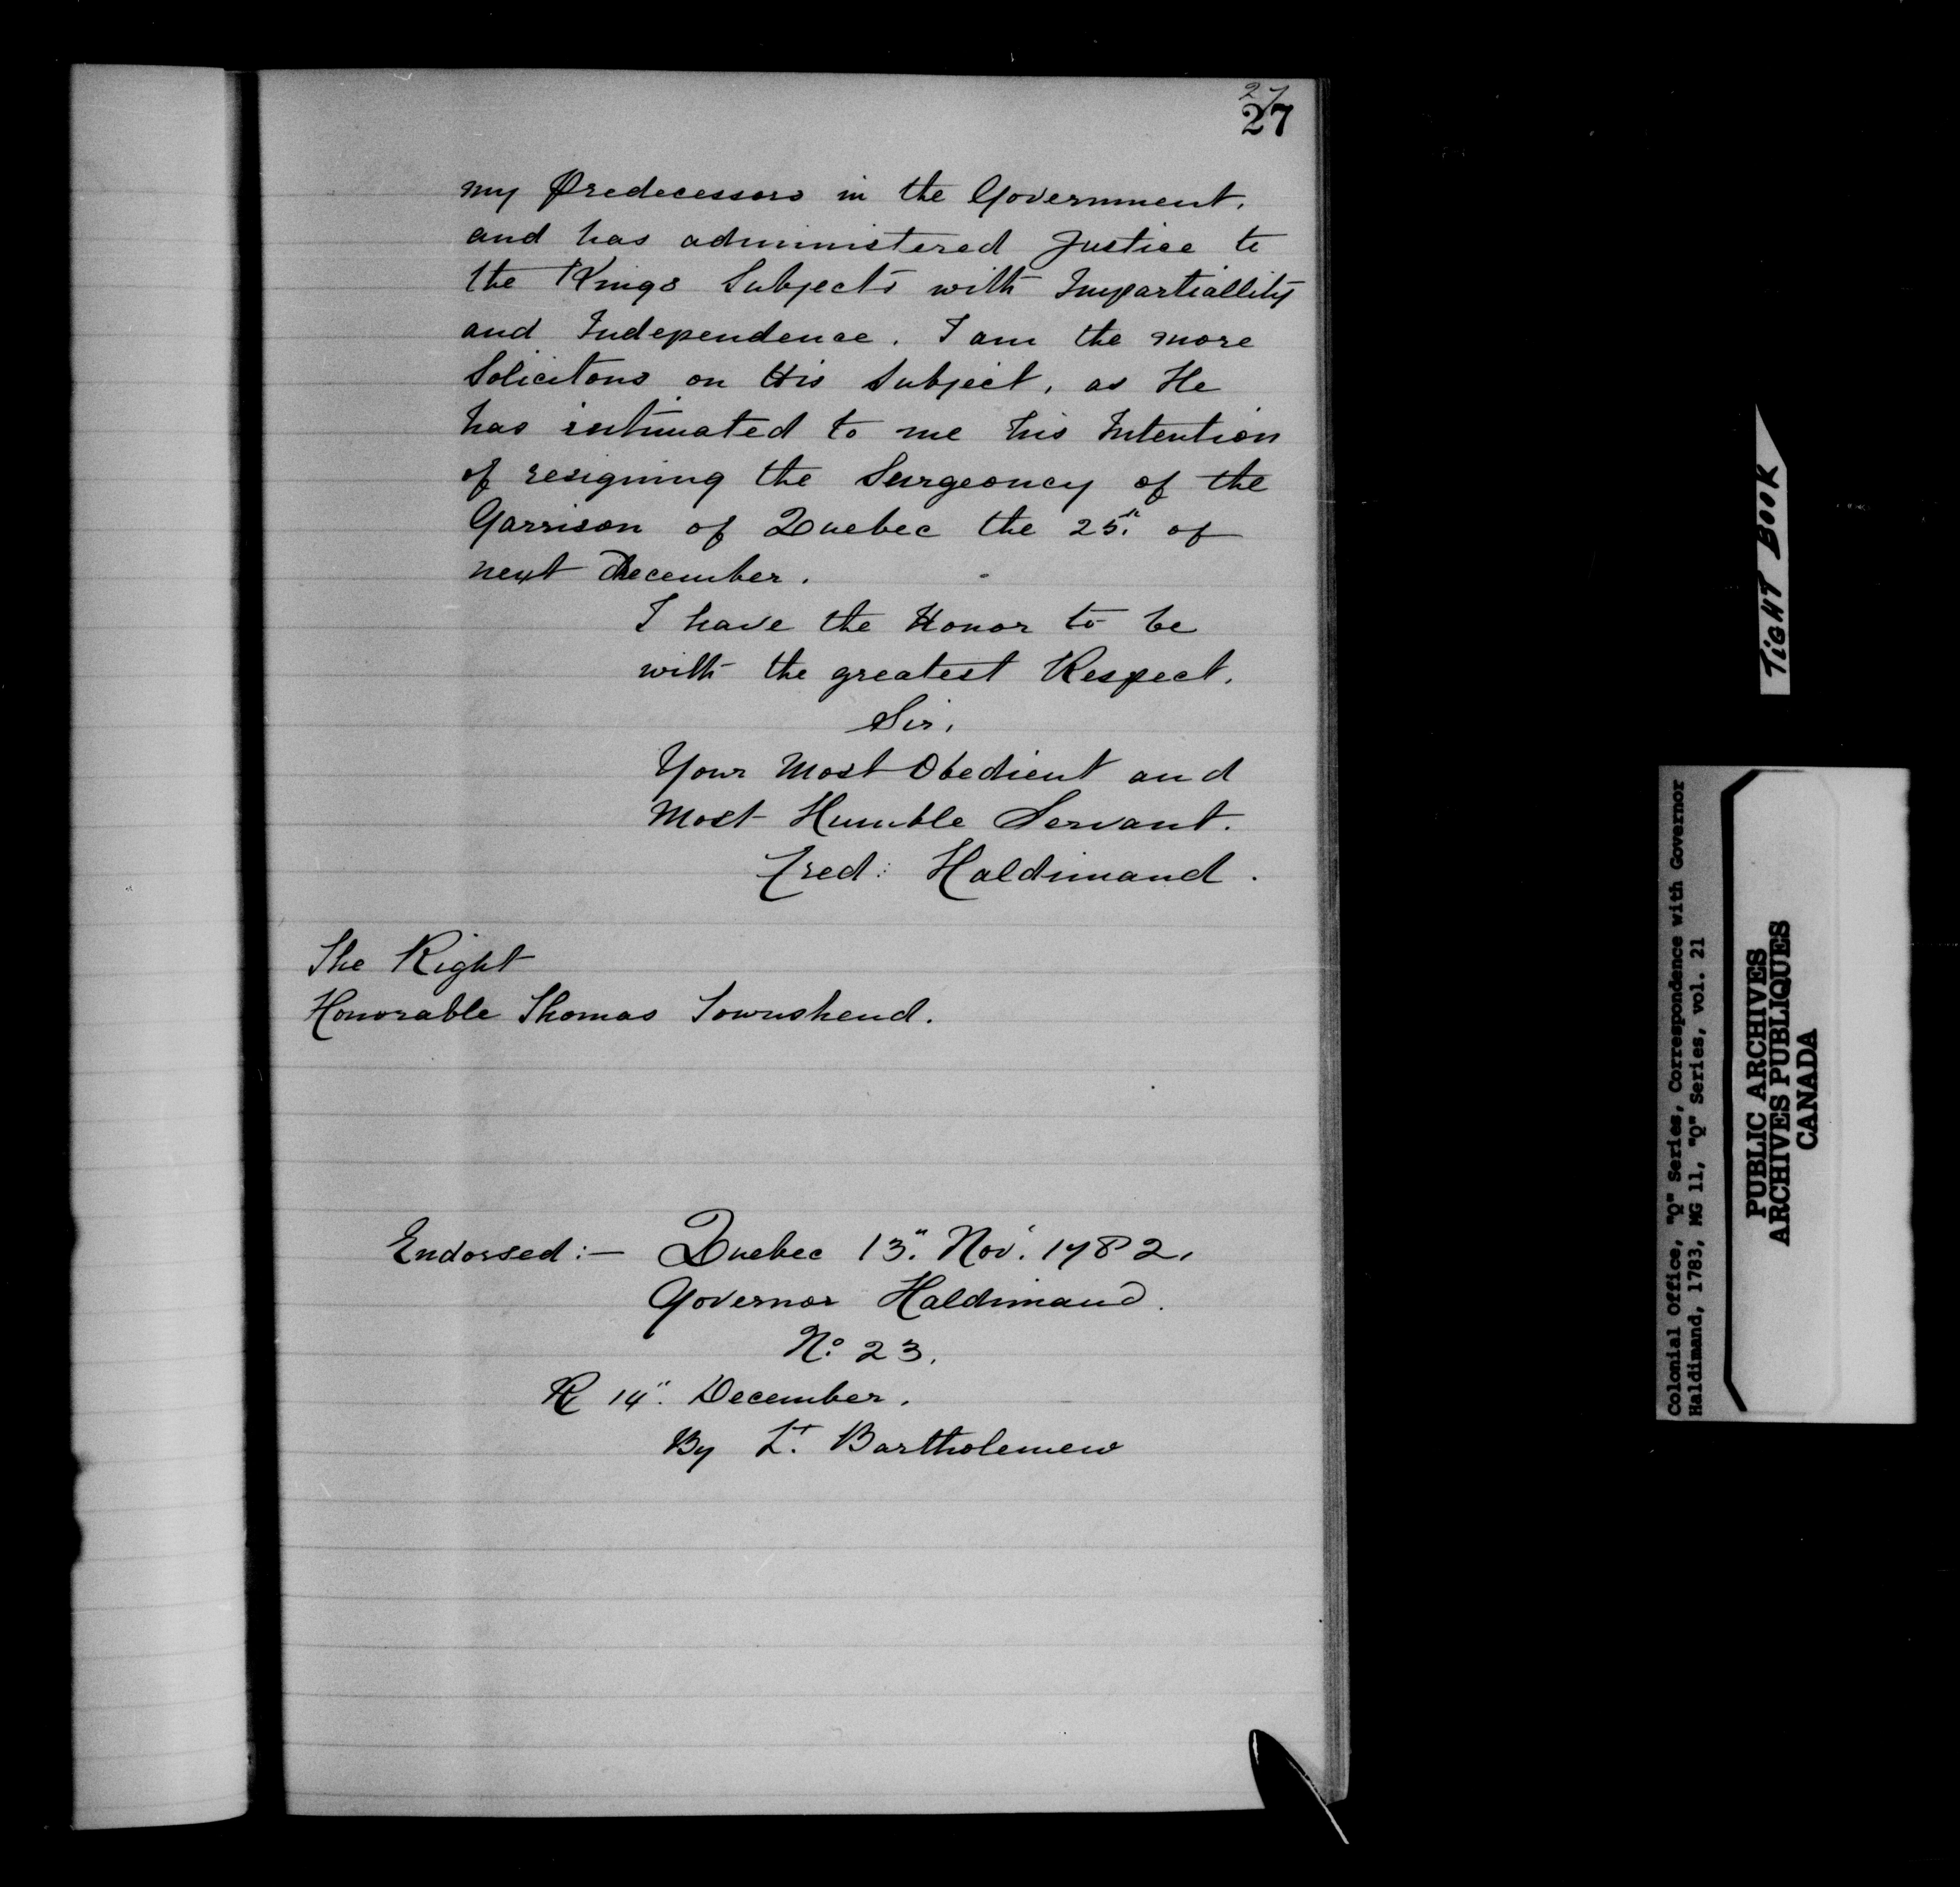 27
27
my Predecessors in the Government,
and has administered Justice to
the Kings Subjects with Impartiallity
and Independence. I am the more
Solicitous on this Subject, as He
has intimated to me his Intention
of resigning the Surgeoncy of the
Garrison of Quebec the 25". of
next December.
I have the Honor to be
with the greatest Respect,
Sir,
Your Most Obedient and
Most Humble Servant.
Fred: Haldimand.
The Right
Honorable Thomas Townshend.
Endorsed:— Quebec 13". Nov'. 1782,
Governor Haldimand.
No. 23.
R 14". December.
By Lt. Bartholemew
TIGHT BOOK
Colonial Office, "Q" Series, Correspondence with Governor
Haldimand, 1783, MG 11, "Q" Series, vol. 21
PUBLIC ARCHIVES
ARCHIVES PUBLIQUES
CANADA